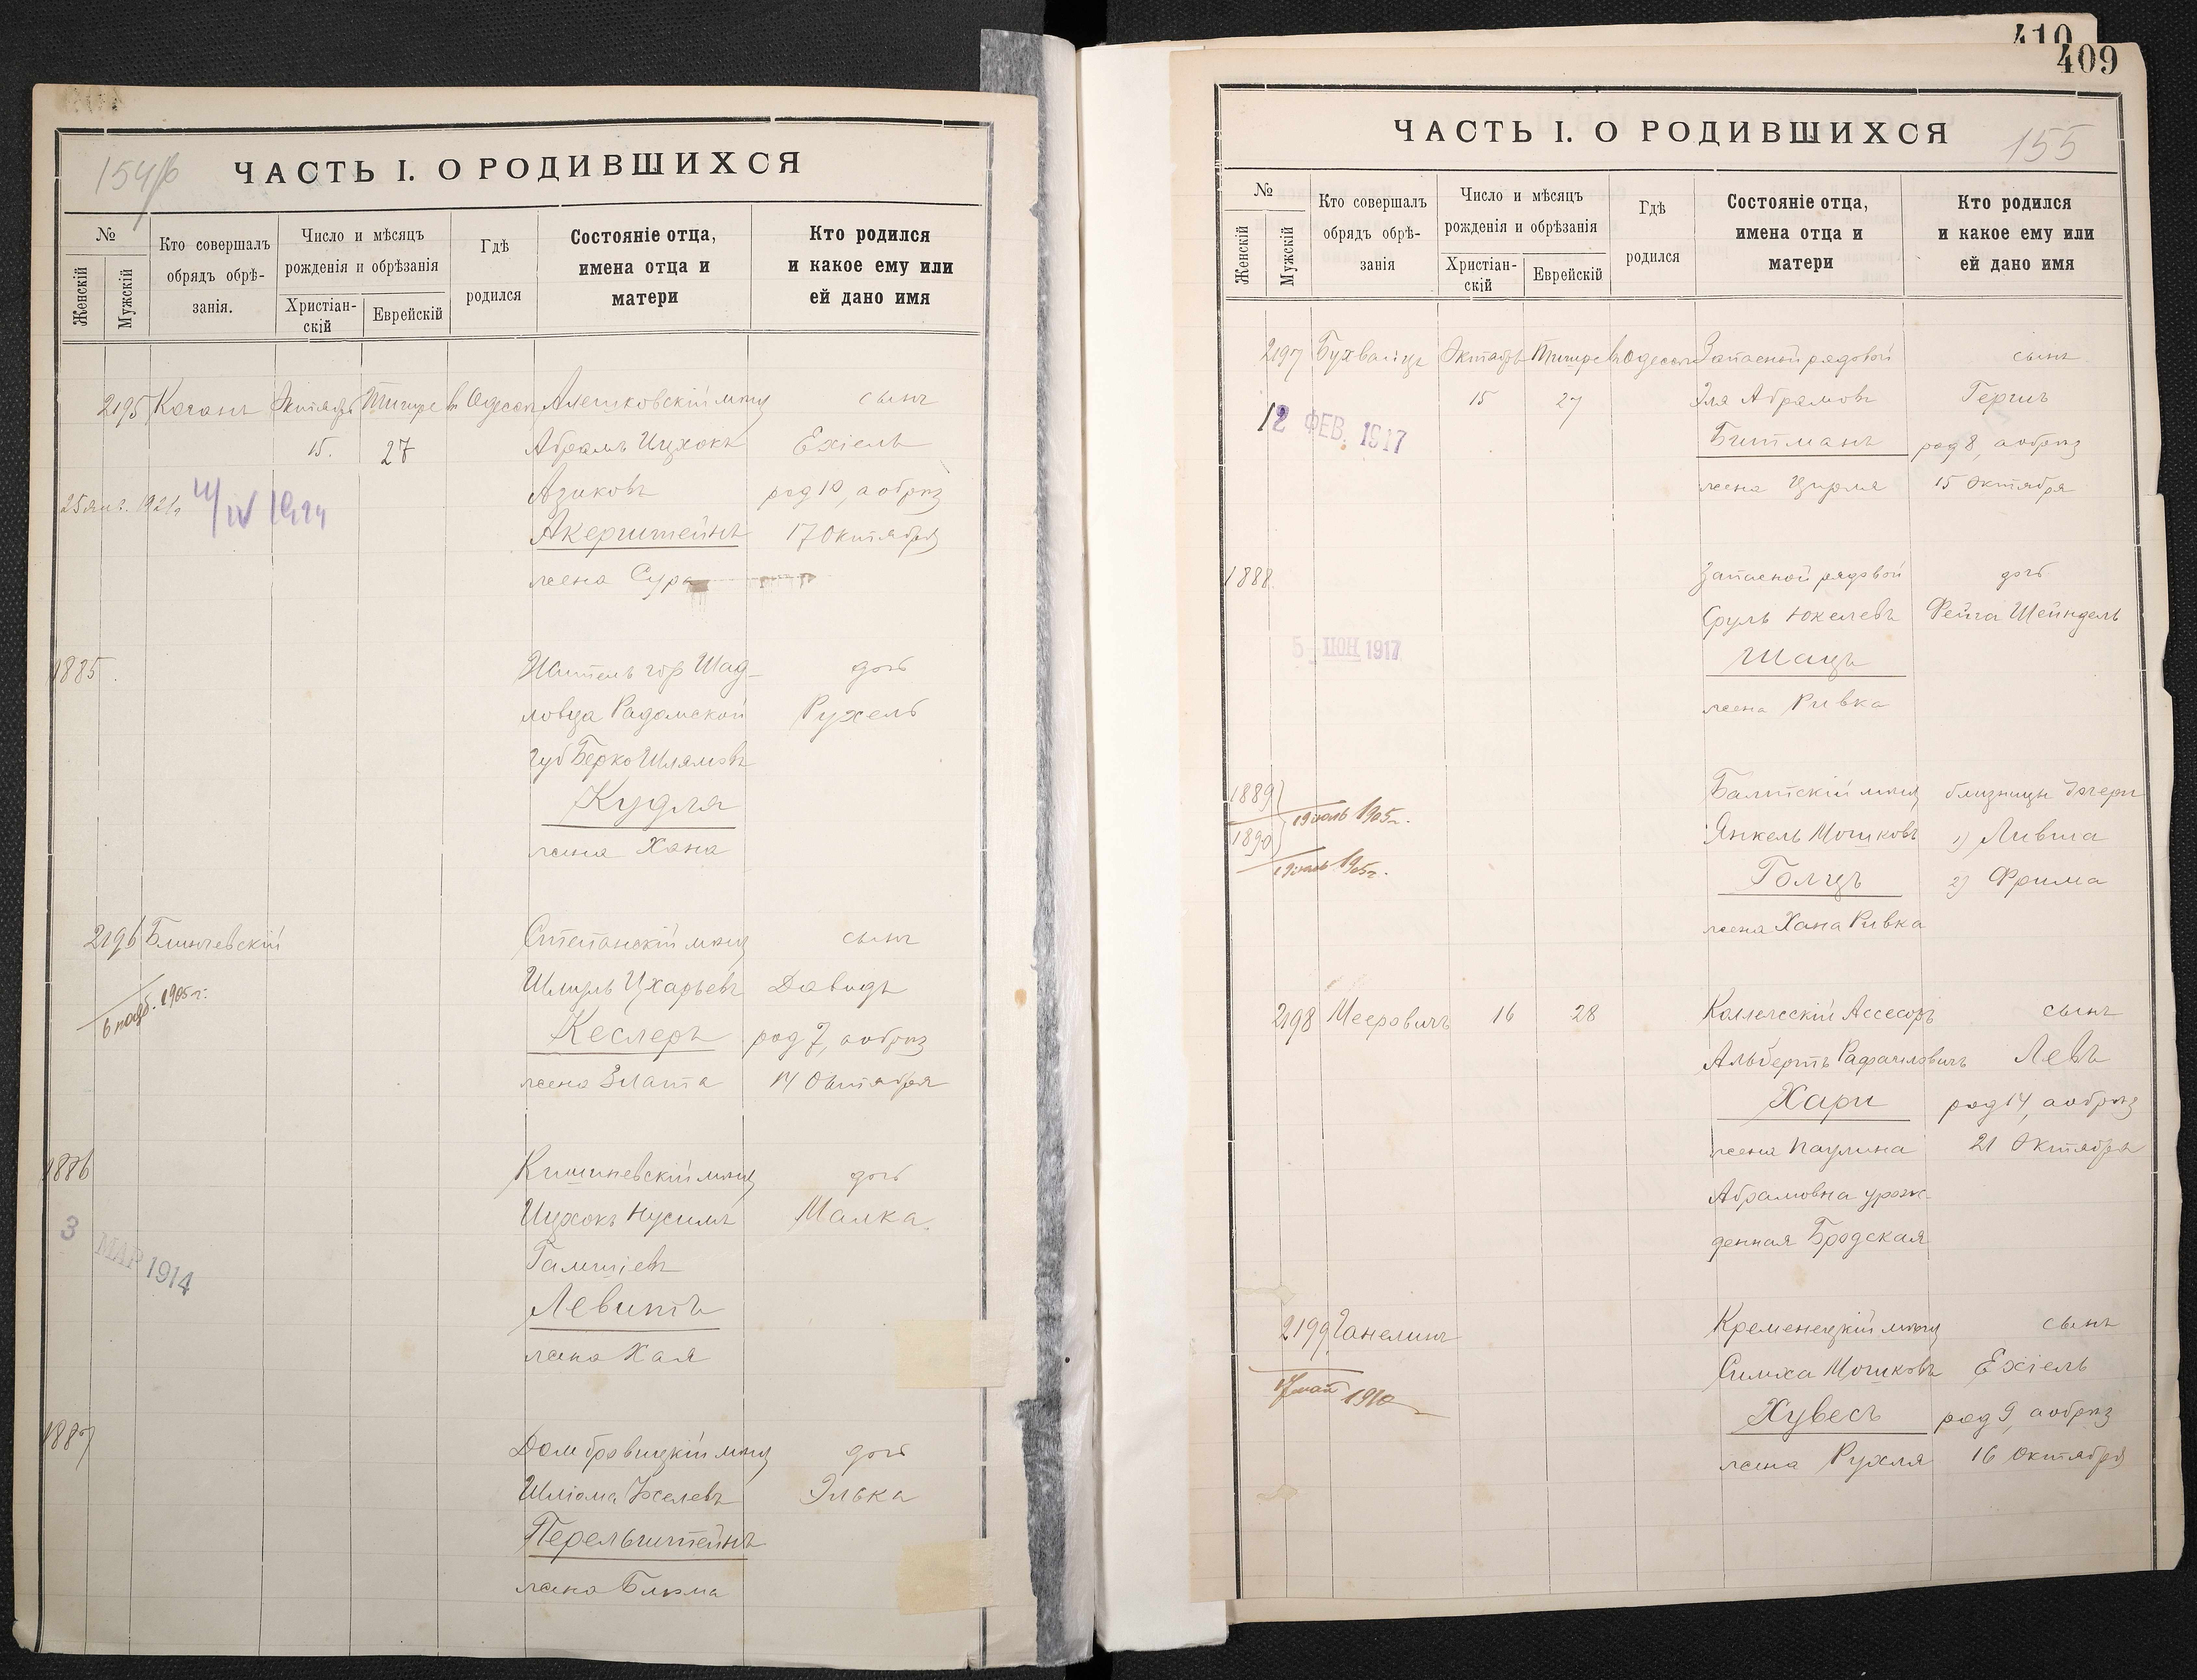 154/б
ЧАСТЬ I. О РОДИВШИХСЯ
№
Женскій
Мужскій
Кто совершалъ
обрядъ обрѣ-
занія.
Число и мѣсяцъ
рожденія и обрѣзанія
Христіан-
скій
Еврейскій
Гдѣ
родился
Состояніе отца,
имена отца и
матери
Кто родился
и какое ему или
ей дано имя
2195 Коганъ Октябрь Тишре в Одессѣ Алешковскій мѣщ сынъ
15. 27 Абрамъ Ицхокъ Ехіель
25 янв. 1921г IV 1924 Азиковъ род 10, а обрѣз
Акерштейнъ 17 Октября
жена Сура
1885. Житель гор Шад- дочь
ловца Радомской Рухель
губ Берко Шлямовъ
Кудля
жена Хана
2196 Блинчевскій Степанскій мѣщ сынъ
6 нояб. 1905 г. Шмуль Цхарьевъ Давидъ
Кеслеръ род 7, а обрѣз
жена Злата 14 Октября
1886 Кишиневскій мѣщ дочь
3 МАР 1914 Ицхокъ Нусимъ Малка
Левитъ
жена Хая
1887 Домбровицкій мѣщ дочь
Шліома Іоселевъ Элька
Перельштейнъ
жена Блюма
410
409
ЧАСТЬ I. О РОДИВШИХСЯ
155
№
Женскій
Мужскій
Кто совершалъ
обрядъ обрѣ-
занія
Число и мѣсяцъ
рожденія и обрѣзанія
Христіан-
скій
Еврейскій
Гдѣ
родился
Состояніе отца,
имена отца и
матери
Кто родился
и какое ему или
ей дано имя
2197 Бухвайцъ Октябрь Тишре в Одессѣ Запасной рядовой сынъ
12 ФЕВ. 1917 15 27 Эля Абрамовъ Гершъ
Битманъ род 8, а обрѣз
жена Цирля 15 Октября
1888. Запасной рядовой дочь
Сруль Юкелевъ Фейга Шейндель
5 ІЮН 1917 Шацъ
жена Ривка
1889 19 іюль 1905 г. Балтскій мѣщ близнецы дочери
1890 Янкель Мошковъ 1) Ливша
19 іюль 1905 г. Голцъ 2) Фрима
жена Хана Ривка
2198 Мееровичъ 16 28 Коллежскій Ассесоръ сынъ
Альбертъ Рафаиловичъ Левъ
Хари род 14, а обрѣз
жена Паулина 21 Октября
Абрамовна урож-
денная Бродская
2199. Ганелинъ Кременецкій мѣщ сынъ
17 май 1910 Симха Мошковъ Ехіель
Хувесъ род 9, а обрѣз
жена Рухля 16 Октября